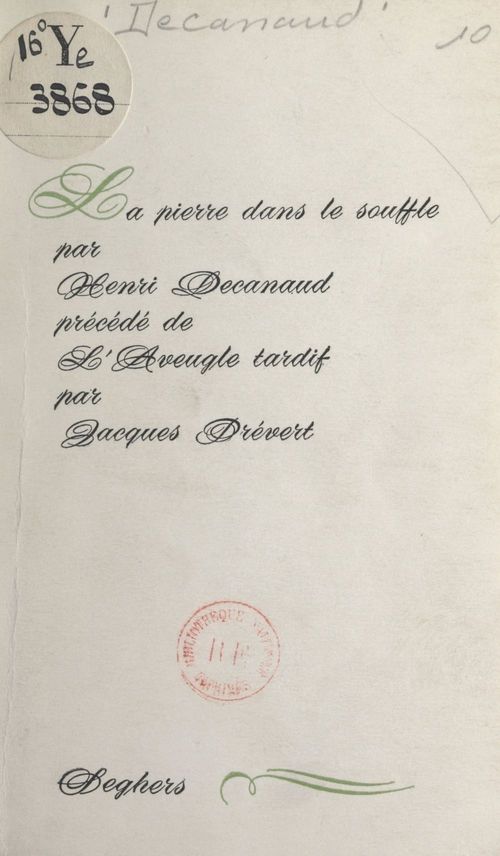 Decanaud
10
16° Ye
3868
La pierre dans le souffle
par
Henri Decanaud
précédé de
L'Aveugle tardif
par
Jacques Prévert
BIBLIOTHÈQUE NATIONALE
IMPRIMÉS
Seghers